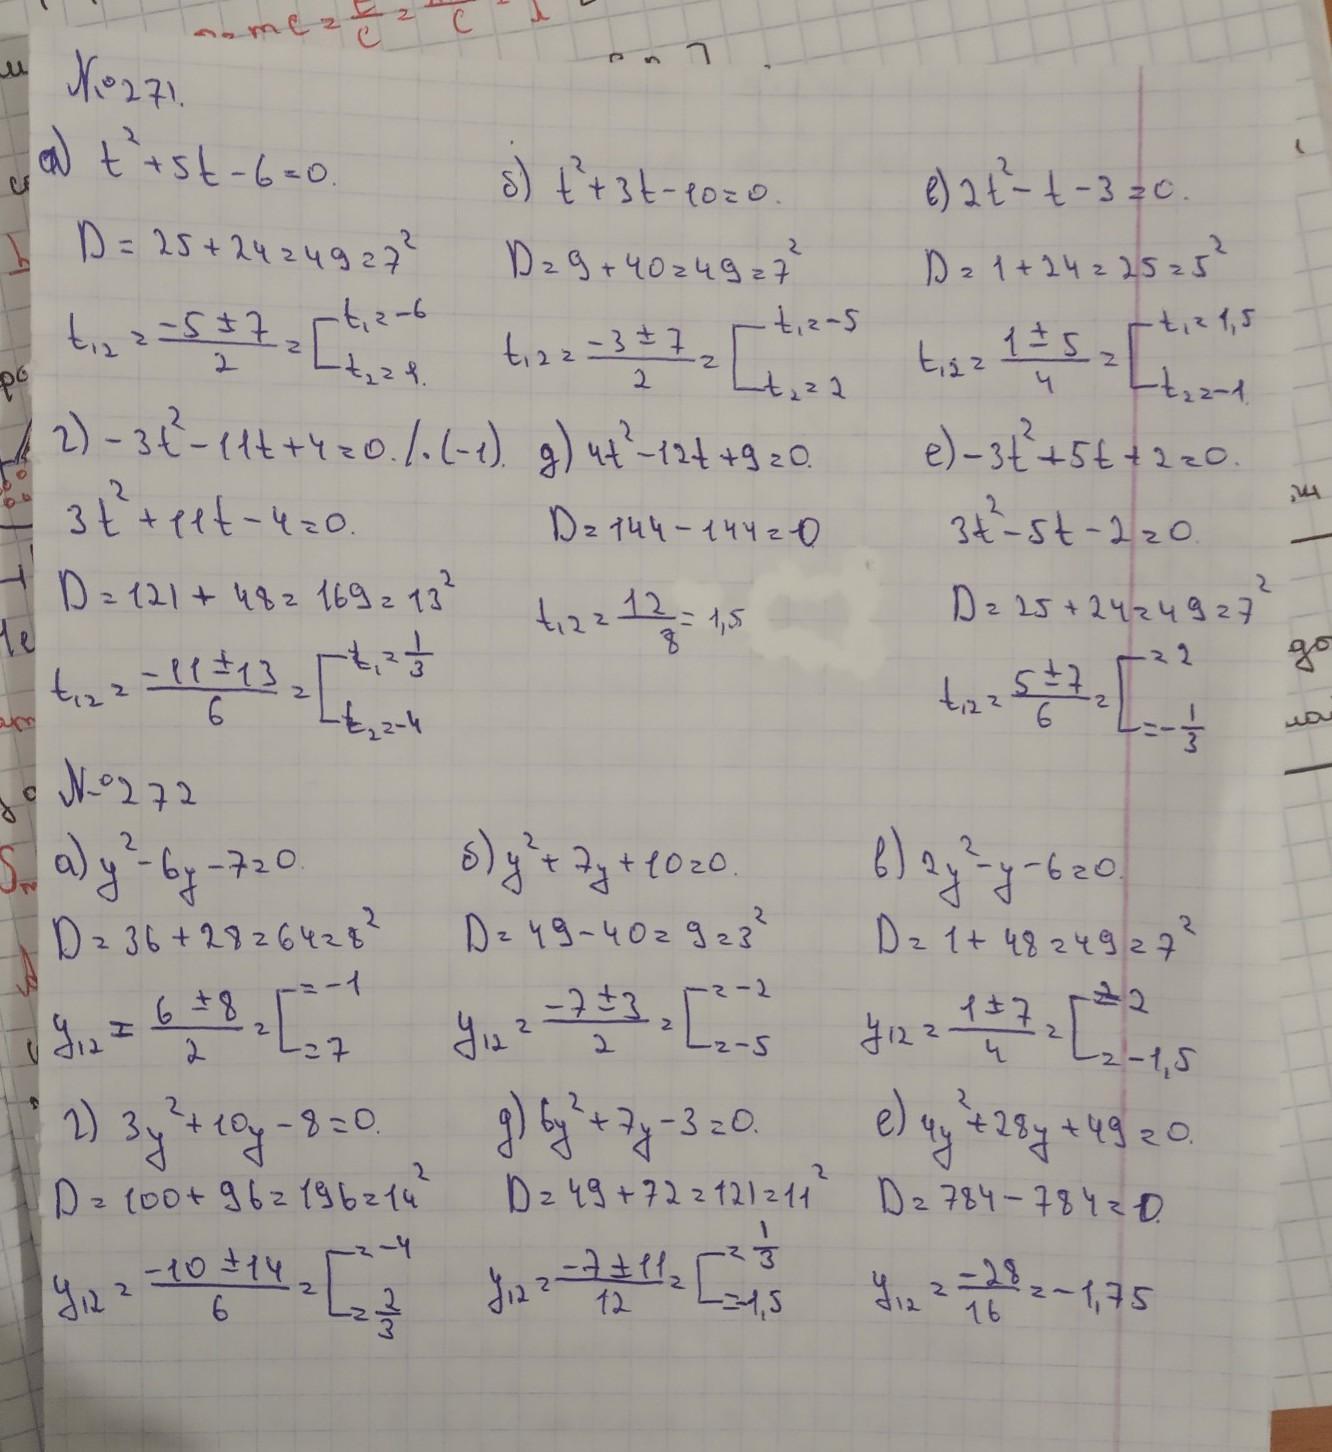 №271.
а) t² + 5t - 6 = 0.
D = 25 + 24 = 49 = 7²
t₁,₂ = (-5 ± 7)/2 = [ t₁ = -6
t₂ = 1.
б) t² + 3t - 10 = 0.
D = 9 + 40 = 49 = 7²
t₁,₂ = (-3 ± 7)/2 = [ t₁ = -5
t₂ = 2
в) 2t² - t - 3 = 0.
D = 1 + 24 = 25 = 5²
t₁,₂ = (1 ± 5)/4 = [ t₁ = 1,5
t₂ = -1
г) -3t² - 11t + 4 = 0. /·(-1).
3t² + 11t - 4 = 0.
D = 121 + 48 = 169 = 13²
t₁,₂ = (-11 ± 13)/6 = [ t₁ = 1/3
t₂ = -4
д) 4t² - 12t + 9 = 0.
D = 144 - 144 = 0
t₁,₂ = 12/8 = 1,5
е) -3t² + 5t + 2 = 0.
3t² - 5t - 2 = 0.
D = 25 + 24 = 49 = 7²
t₁,₂ = (5 ± 7)/6 = [ = 2
= -1/3
№272
а) y² - 6y - 7 = 0.
D = 36 + 28 = 64 = 8²
y₁₂ = (6 ± 8)/2 = [ = -1
= 7
б) y² + 7y + 10 = 0.
D = 49 - 40 = 9 = 3²
y₁₂ = (-7 ± 3)/2 = [ = -2
= -5
в) 2y² - y - 6 = 0.
D = 1 + 48 = 49 = 7²
y₁₂ = (1 ± 7)/4 = [ = 2
= -1,5
г) 3y² + 10y - 8 = 0.
D = 100 + 96 = 196 = 14²
y₁₂ = (-10 ± 14)/6 = [ = -4
= 2/3
д) 6y² + 7y - 3 = 0.
D = 49 + 72 = 121 = 11²
y₁₂ = (-7 ± 11)/12 = [ = 1/3
= -1,5
е) 4y² + 28y + 49 = 0.
D = 784 - 784 = 0.
y₁₂ = -28/16 = -1,75